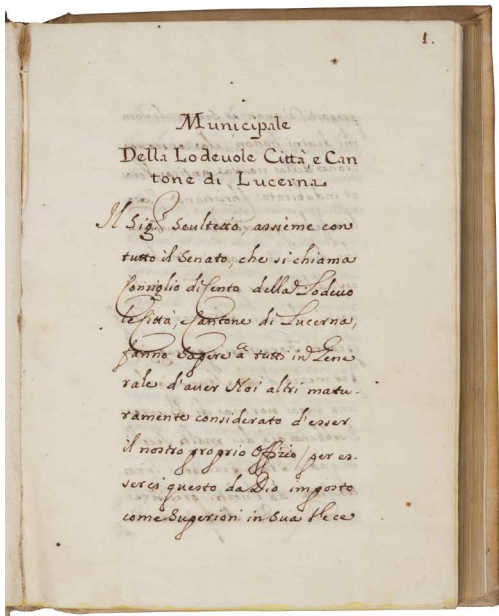 1.
Municipale
Della Lodeuole Città, e Can
tone di Lucerna
Il Sig.r Scultetto, assieme con
tutto il Senato, che si chiama
Consiglio di Cento della Lodeuo
le Città, e Cantone di Lucerna,
fanno sapere à tutti in Gene
rale d'auer Noi altri matu-
ramente considerato d'esser
il nostro proprio Offizio /per es-
serci questo da Dio imposto
come Superiori in Sua Vece